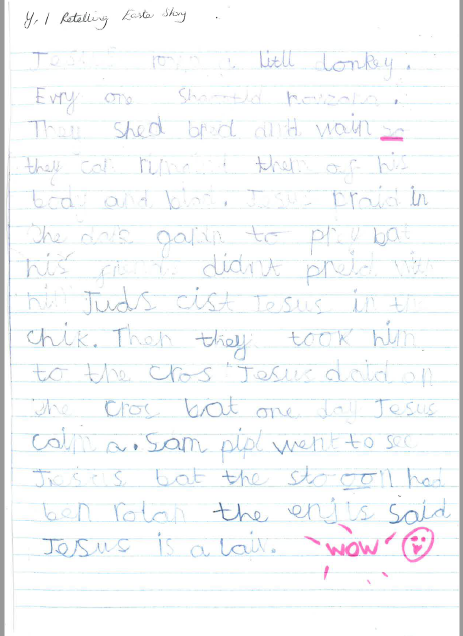 Yr 1 Retelling Easter Story
littl donkey.
Evry one
They shed bred and wain so
they can them of his
and Jesus praid in
the gardin to prey bat
his didnt preid with
him Juds cist Jesus in the
chik. Then they took him
to the cros Jesus daid on
the cros bat one day Jesus
Sam pipl went to see
Jesus bat the stooon had
ben rolan the enjls said
Jesus is a laiv. WOW